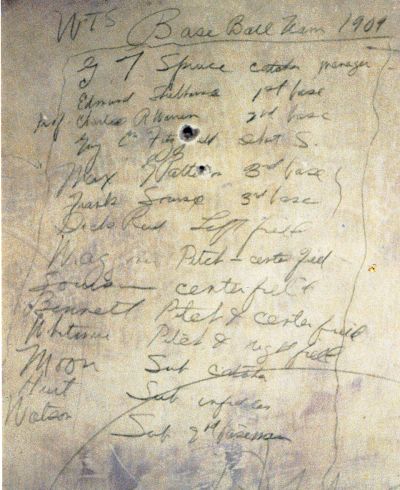 WTS Base Ball Team 1909
G T Spruce catcher manager
Edmund 1st base
Prof. Charles R Warren 2nd base
Guy C. Short S.
Max 3rd base
Frank 3rd base
Dick Reed Left field
Pitch - center field
center field
Bennett Pitch & center field
Whitmire Pitch & right field
Moon Sub catcher
Hurt Sub infielder
Watson Sub baseman